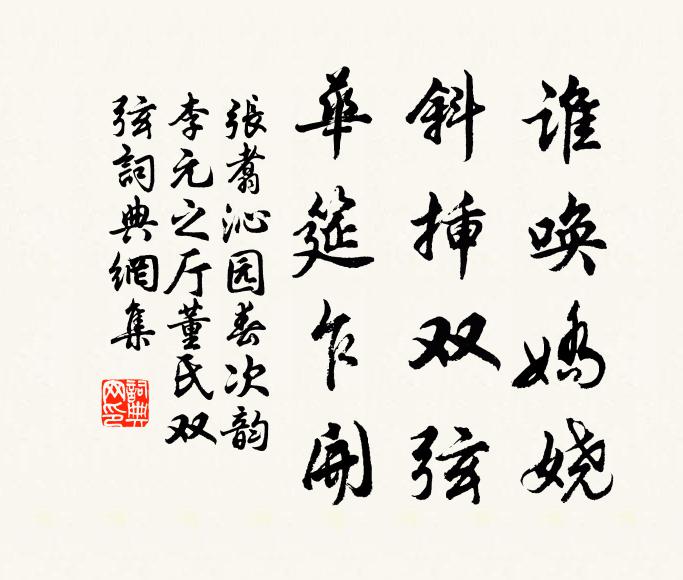 谁唤娇娆
斜插双弦
華筵乍開
張翥沁园春次韵
李元之厅董氏双
弦詞典網集
詞典网印